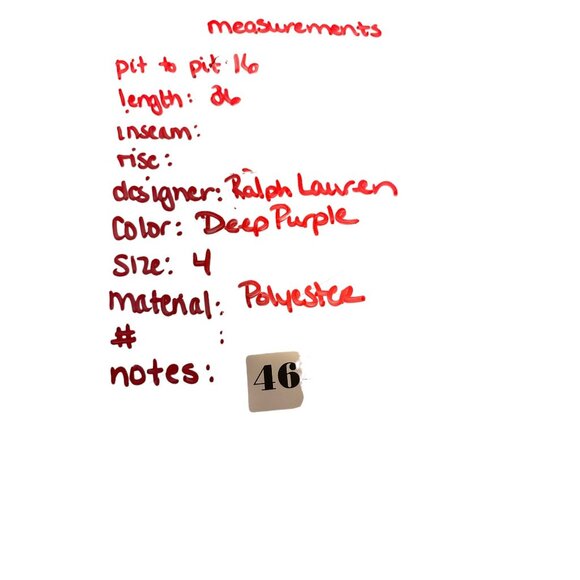 measurements
pit to pit: 16
length: 36
inseam:
rise:
designer: Ralph Lauren
Color: Deep Purple
Size: 4
Material: Polyester
# :
notes: 46